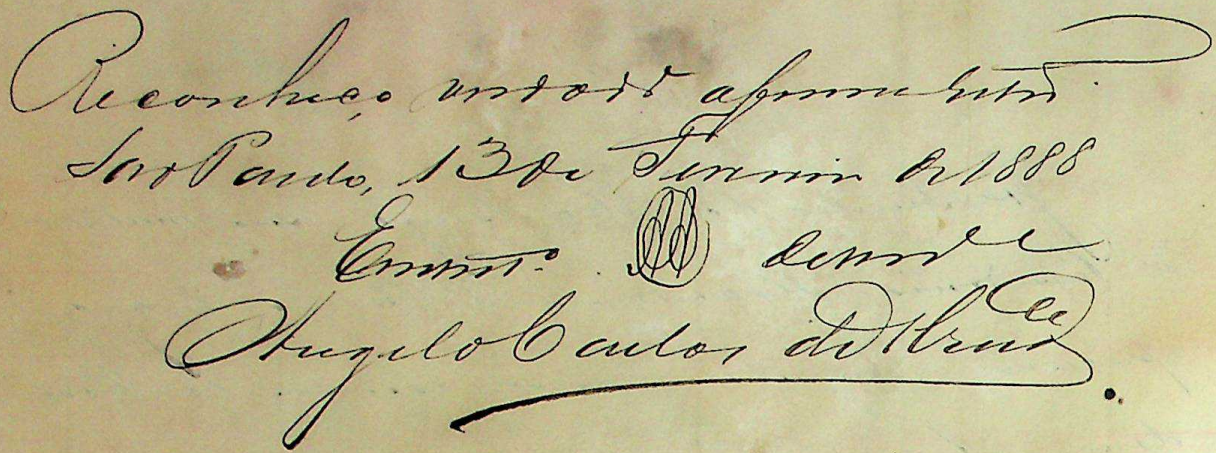 Reconheço verdadr a firma retro.
São Paulo, 13 de Fevereiro de 1888
Em testº. de verde
Angelo Carlos de Abreu